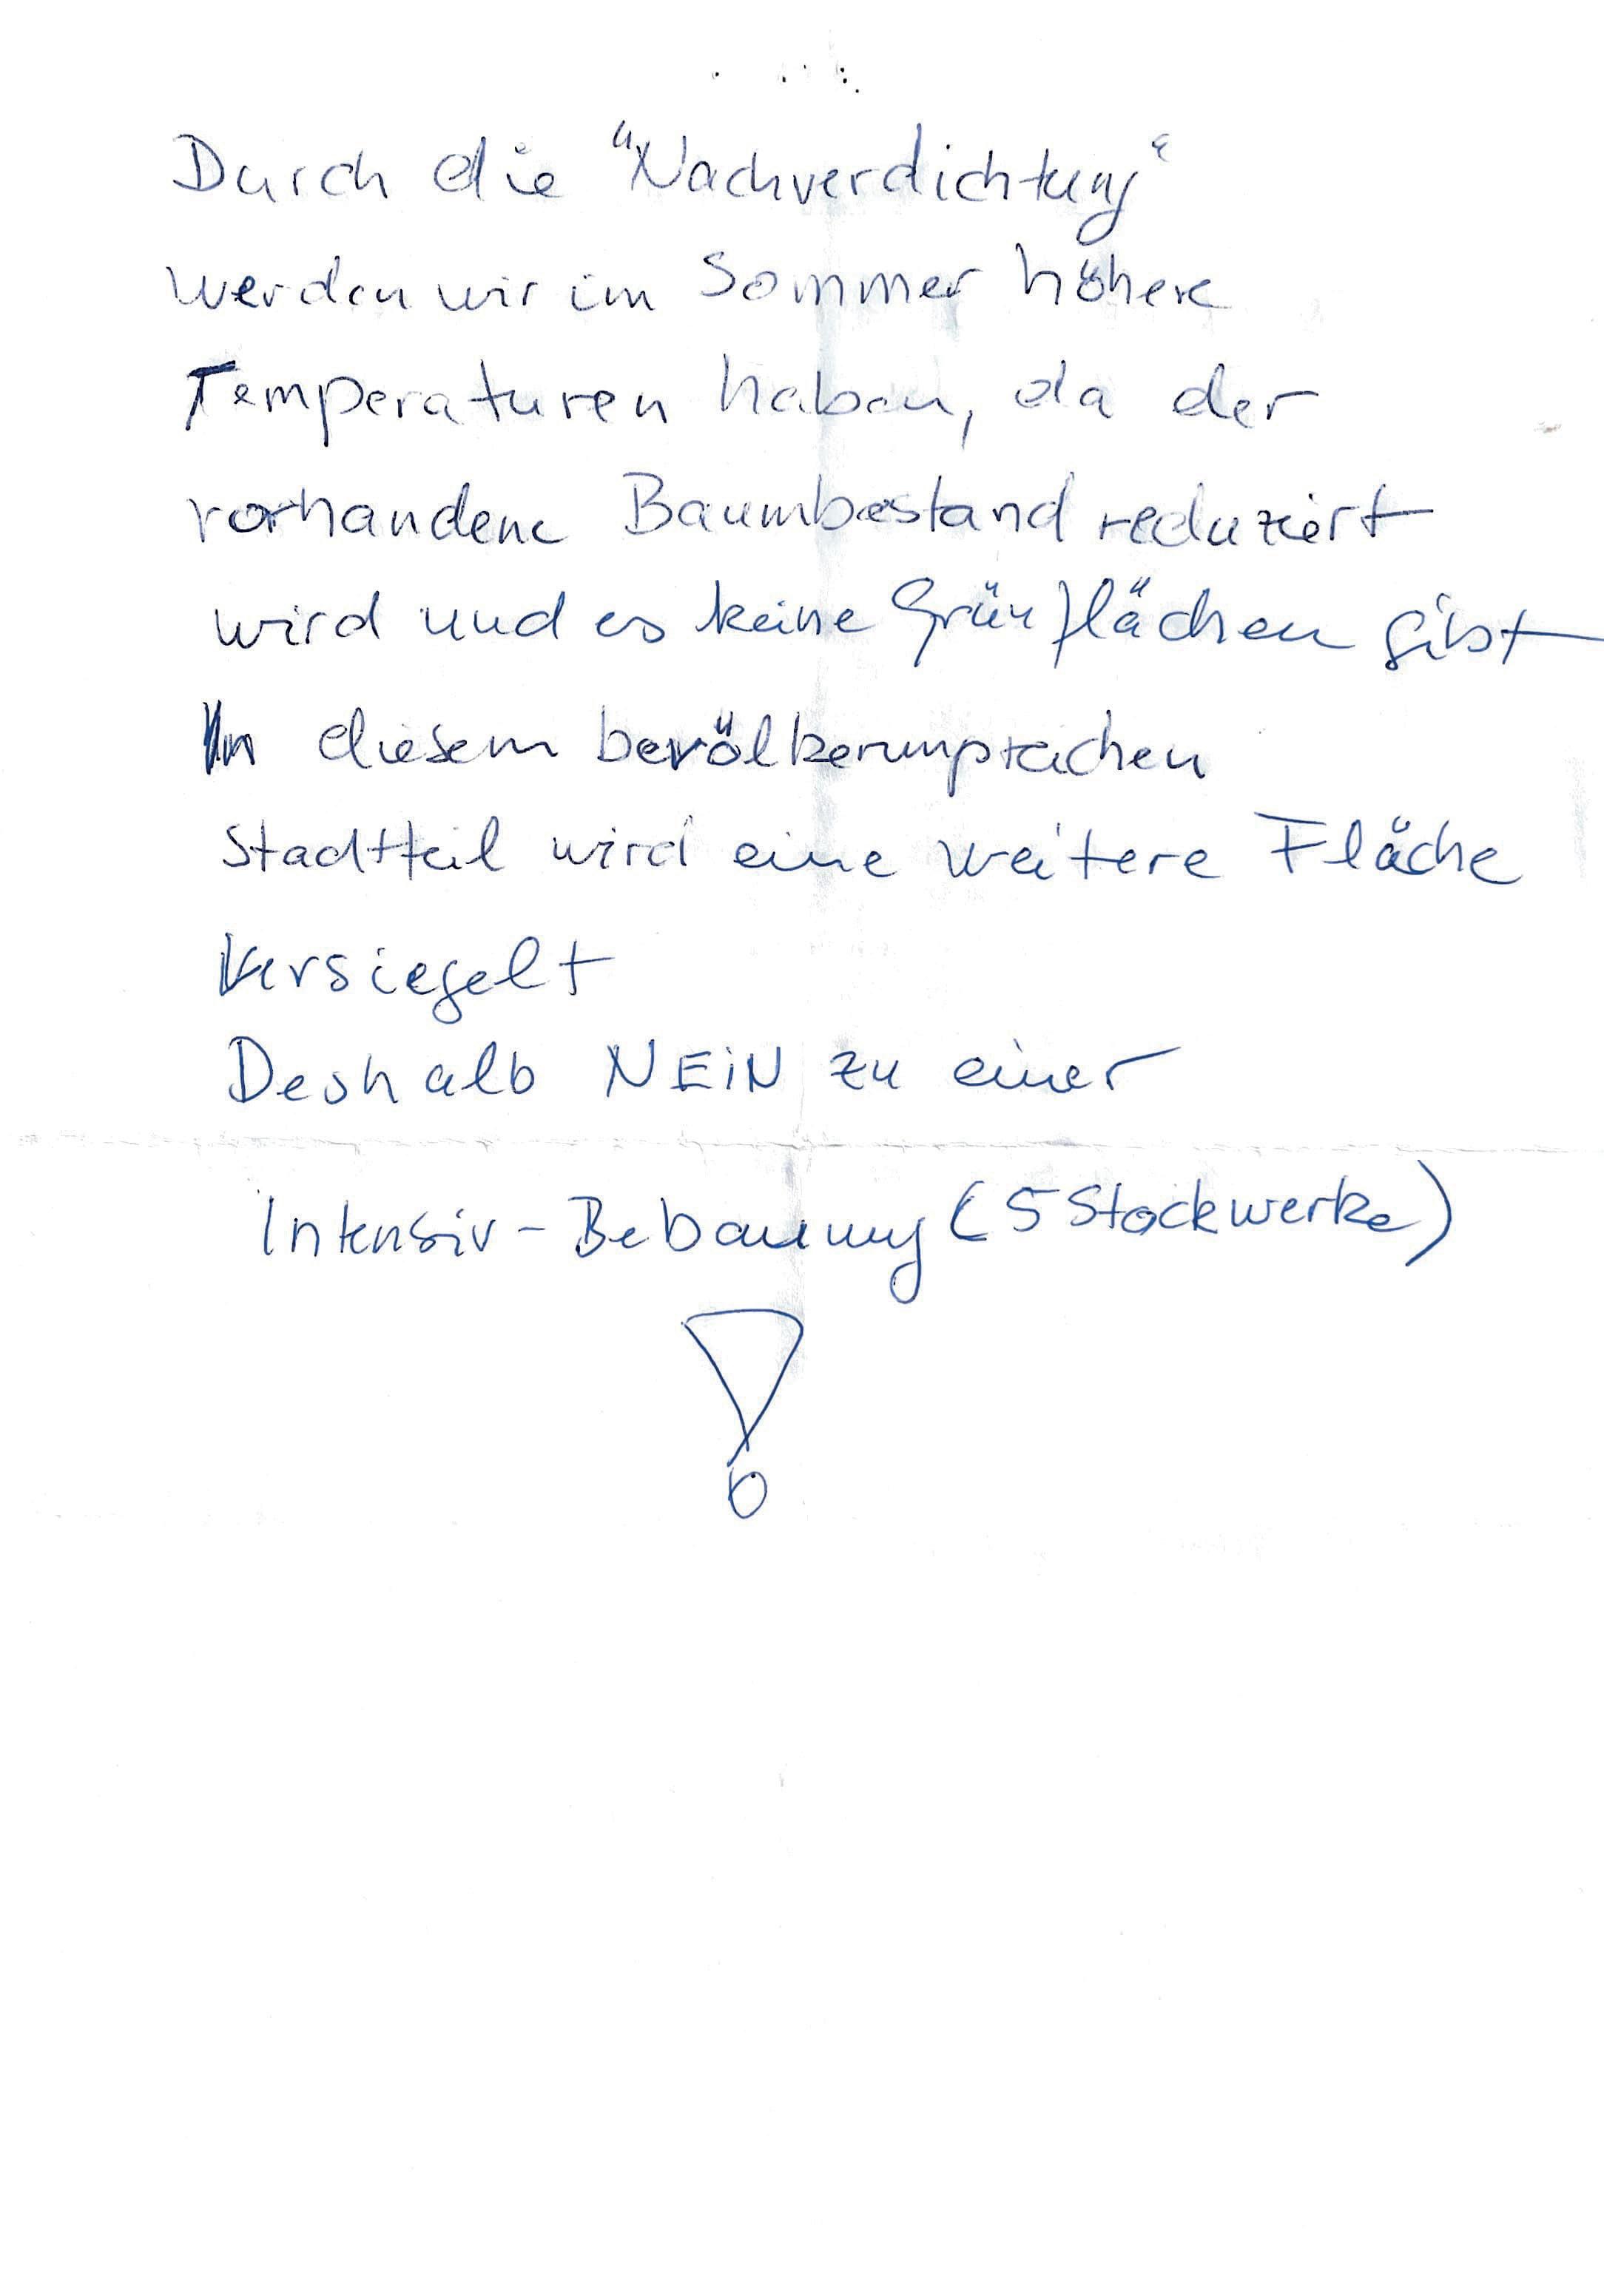 Durch die "Nachverdichtung"
werden wir im Sommer höhere
Temperaturen haben, da der
vorhandene Baumbestand reduziert
wird und es keine Grünflächen gibt
In diesem bevölkerungsreichen
Stadtteil wird eine weitere Fläche
versiegelt
Deshalb NEiN zu einer
Intensiv-Bebauung (5 Stockwerke)
!